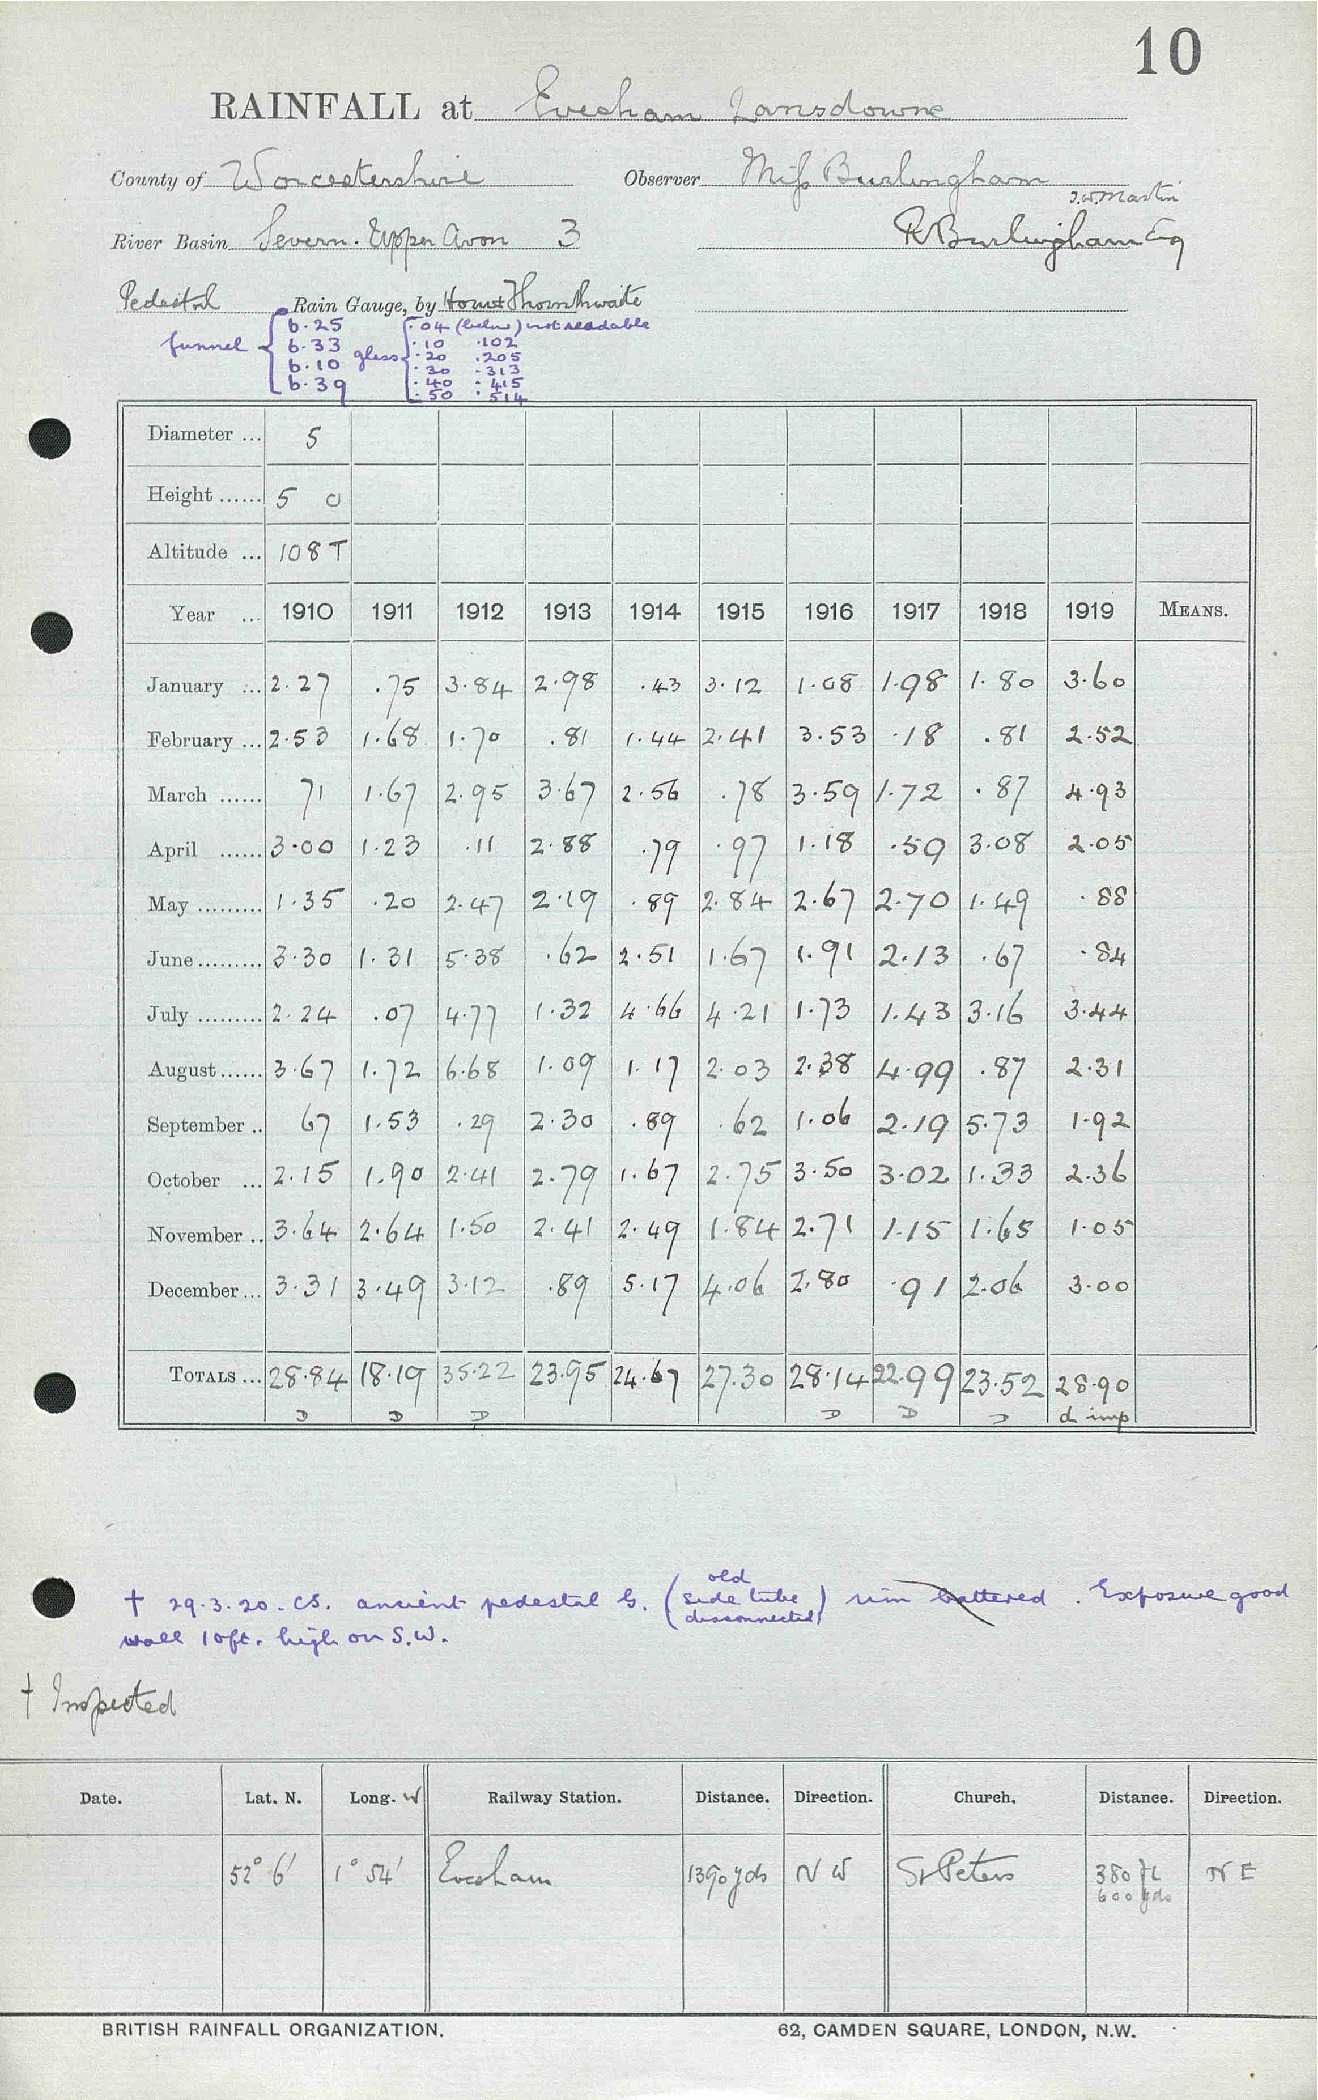 10
RAINFALL at Evesham Lansdowne
County of Worcestershire Observer Miss Burlingham
J.W. Martin
River Basin Severn. Upper Avon 3 R Burlingham Esq
Pedestal Rain Gauge, by Horne Thornthwaite
funnel { 6.25 6.33 6.10 6.39 glass { .04 (below) not readable
.10 .102
.20 .205
.30 .313
.40 .415
.50 .514
Diameter ... 5
Height ...... 5 0
Altitude ... 108 T
Year ... 1910 1911 1912 1913 1914 1915 1916 1917 1918 1919 MEANS.
January ... 2.27 .75 3.84 2.98 .43 3.12 1.08 1.98 1.80 3.60
February ... 2.53 1.68 1.70 .81 1.44 2.41 3.53 .18 .81 2.52
March ...... 71 1.67 2.95 3.67 2.56 .78 3.59 1.72 .87 4.93
April ...... 3.00 1.23 .11 2.88 .79 .97 1.18 .59 3.08 2.05
May ......... 1.35 .20 2.47 2.19 .89 2.84 2.67 2.70 1.49 .88
June ......... 3.30 1.31 5.38 .62 2.51 1.67 1.91 2.13 .67 .84
July ......... 2.24 .07 4.77 1.32 4.66 4.21 1.73 1.43 3.16 3.44
August ...... 3.67 1.72 6.68 1.09 1.17 2.03 2.38 4.99 .87 2.31
September .. 67 1.53 .29 2.30 .89 .62 1.06 2.19 5.73 1.92
October ... 2.15 1.90 2.41 2.79 1.67 2.75 3.50 3.02 1.33 2.36
November .. 3.64 2.64 1.50 2.41 2.49 1.84 2.71 1.15 1.65 1.05
December ... 3.31 3.49 3.12 .89 5.17 4.06 2.80 .91 2.06 3.00
TOTALS ... 28.84 18.19 35.22 23.95 24.67 27.30 28.14 22.99 23.52 28.90
D D D D D D d imp
† 29.3.20. CS. ancient pedestal G. (old side tube disconnected) rim battered. Exposure good
wall 10ft. high on S.W.
† Inspected
Date. Lat. N. Long. W Railway Station. Distance. Direction. Church. Distance. Direction.
52° 6' 1° 54' Evesham 1390 yds N W St Peters 380 ft N E
600 yds
BRITISH RAINFALL ORGANIZATION. 62, CAMDEN SQUARE, LONDON, N.W.